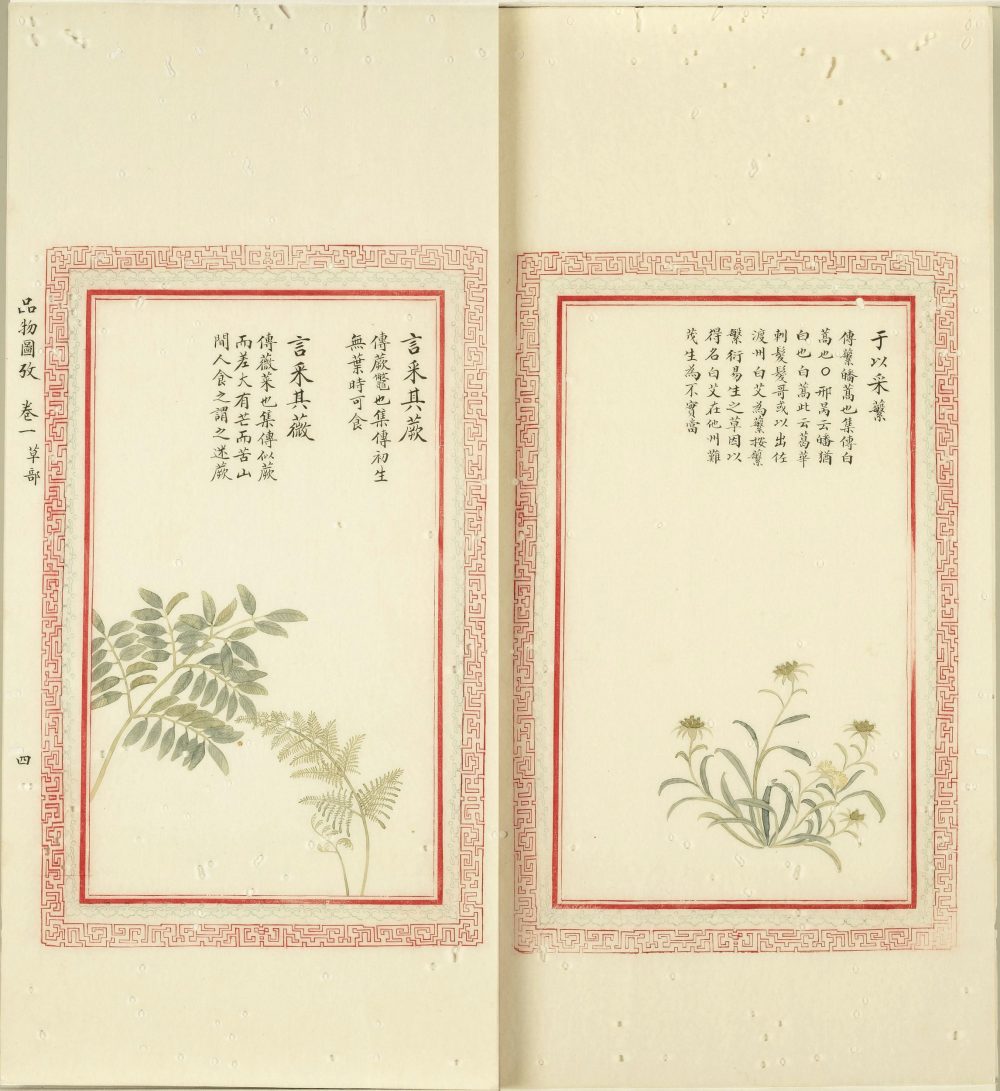 于以采蘩
傳蘩皤蒿也集傳白
蒿也○邢昺云皤猶
白也白蒿此云葛華
刺髮髮哥或以出佐
渡州白艾為蘩按蘩
繁衍易生之草因以
得名白艾在他州難
茂生為不實當
言采其蕨
傳蕨鼈也集傳初生
無葉時可食
言采其薇
傳薇菜也集傳似蕨
而差大有芒而苦山
間人食之謂之迷蕨
品物圖攷 卷一 草部
四